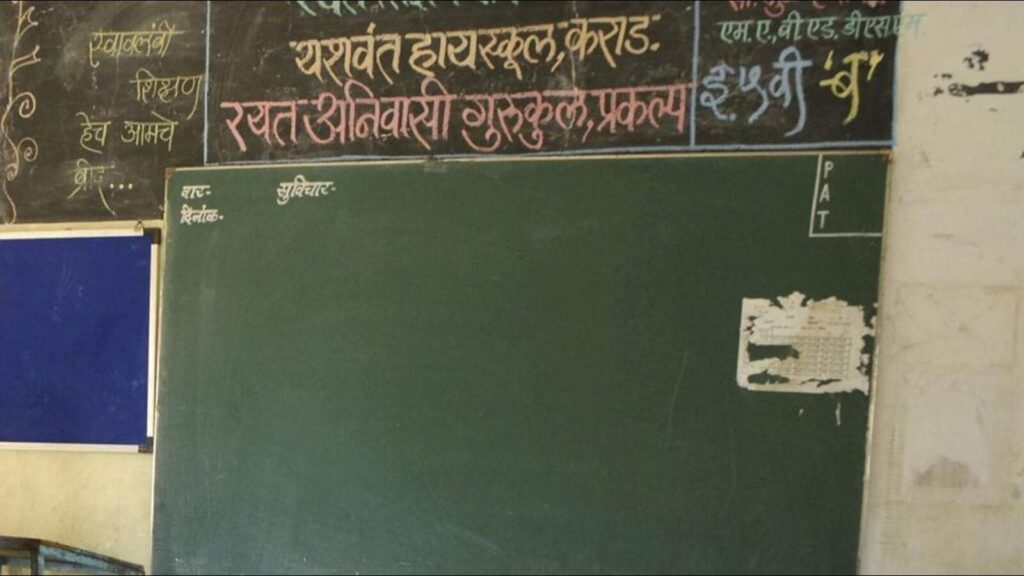 स्वावलंबी
शिक्षण
हेच आमचे
ब्रीद...
यशवंत हायस्कूल, कराड.
रयत अनिवासी गुरुकुल, प्रकल्प
एम. ए, बी एड, डी एस एम.
इ. ५ वी "ब"
वार-
दिनांक-
सुविचार-
P
A
T